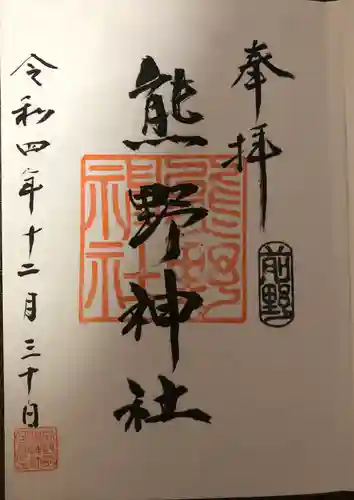 奉拝
前野
熊野神社
熊野神社
令和四年十二月三十日